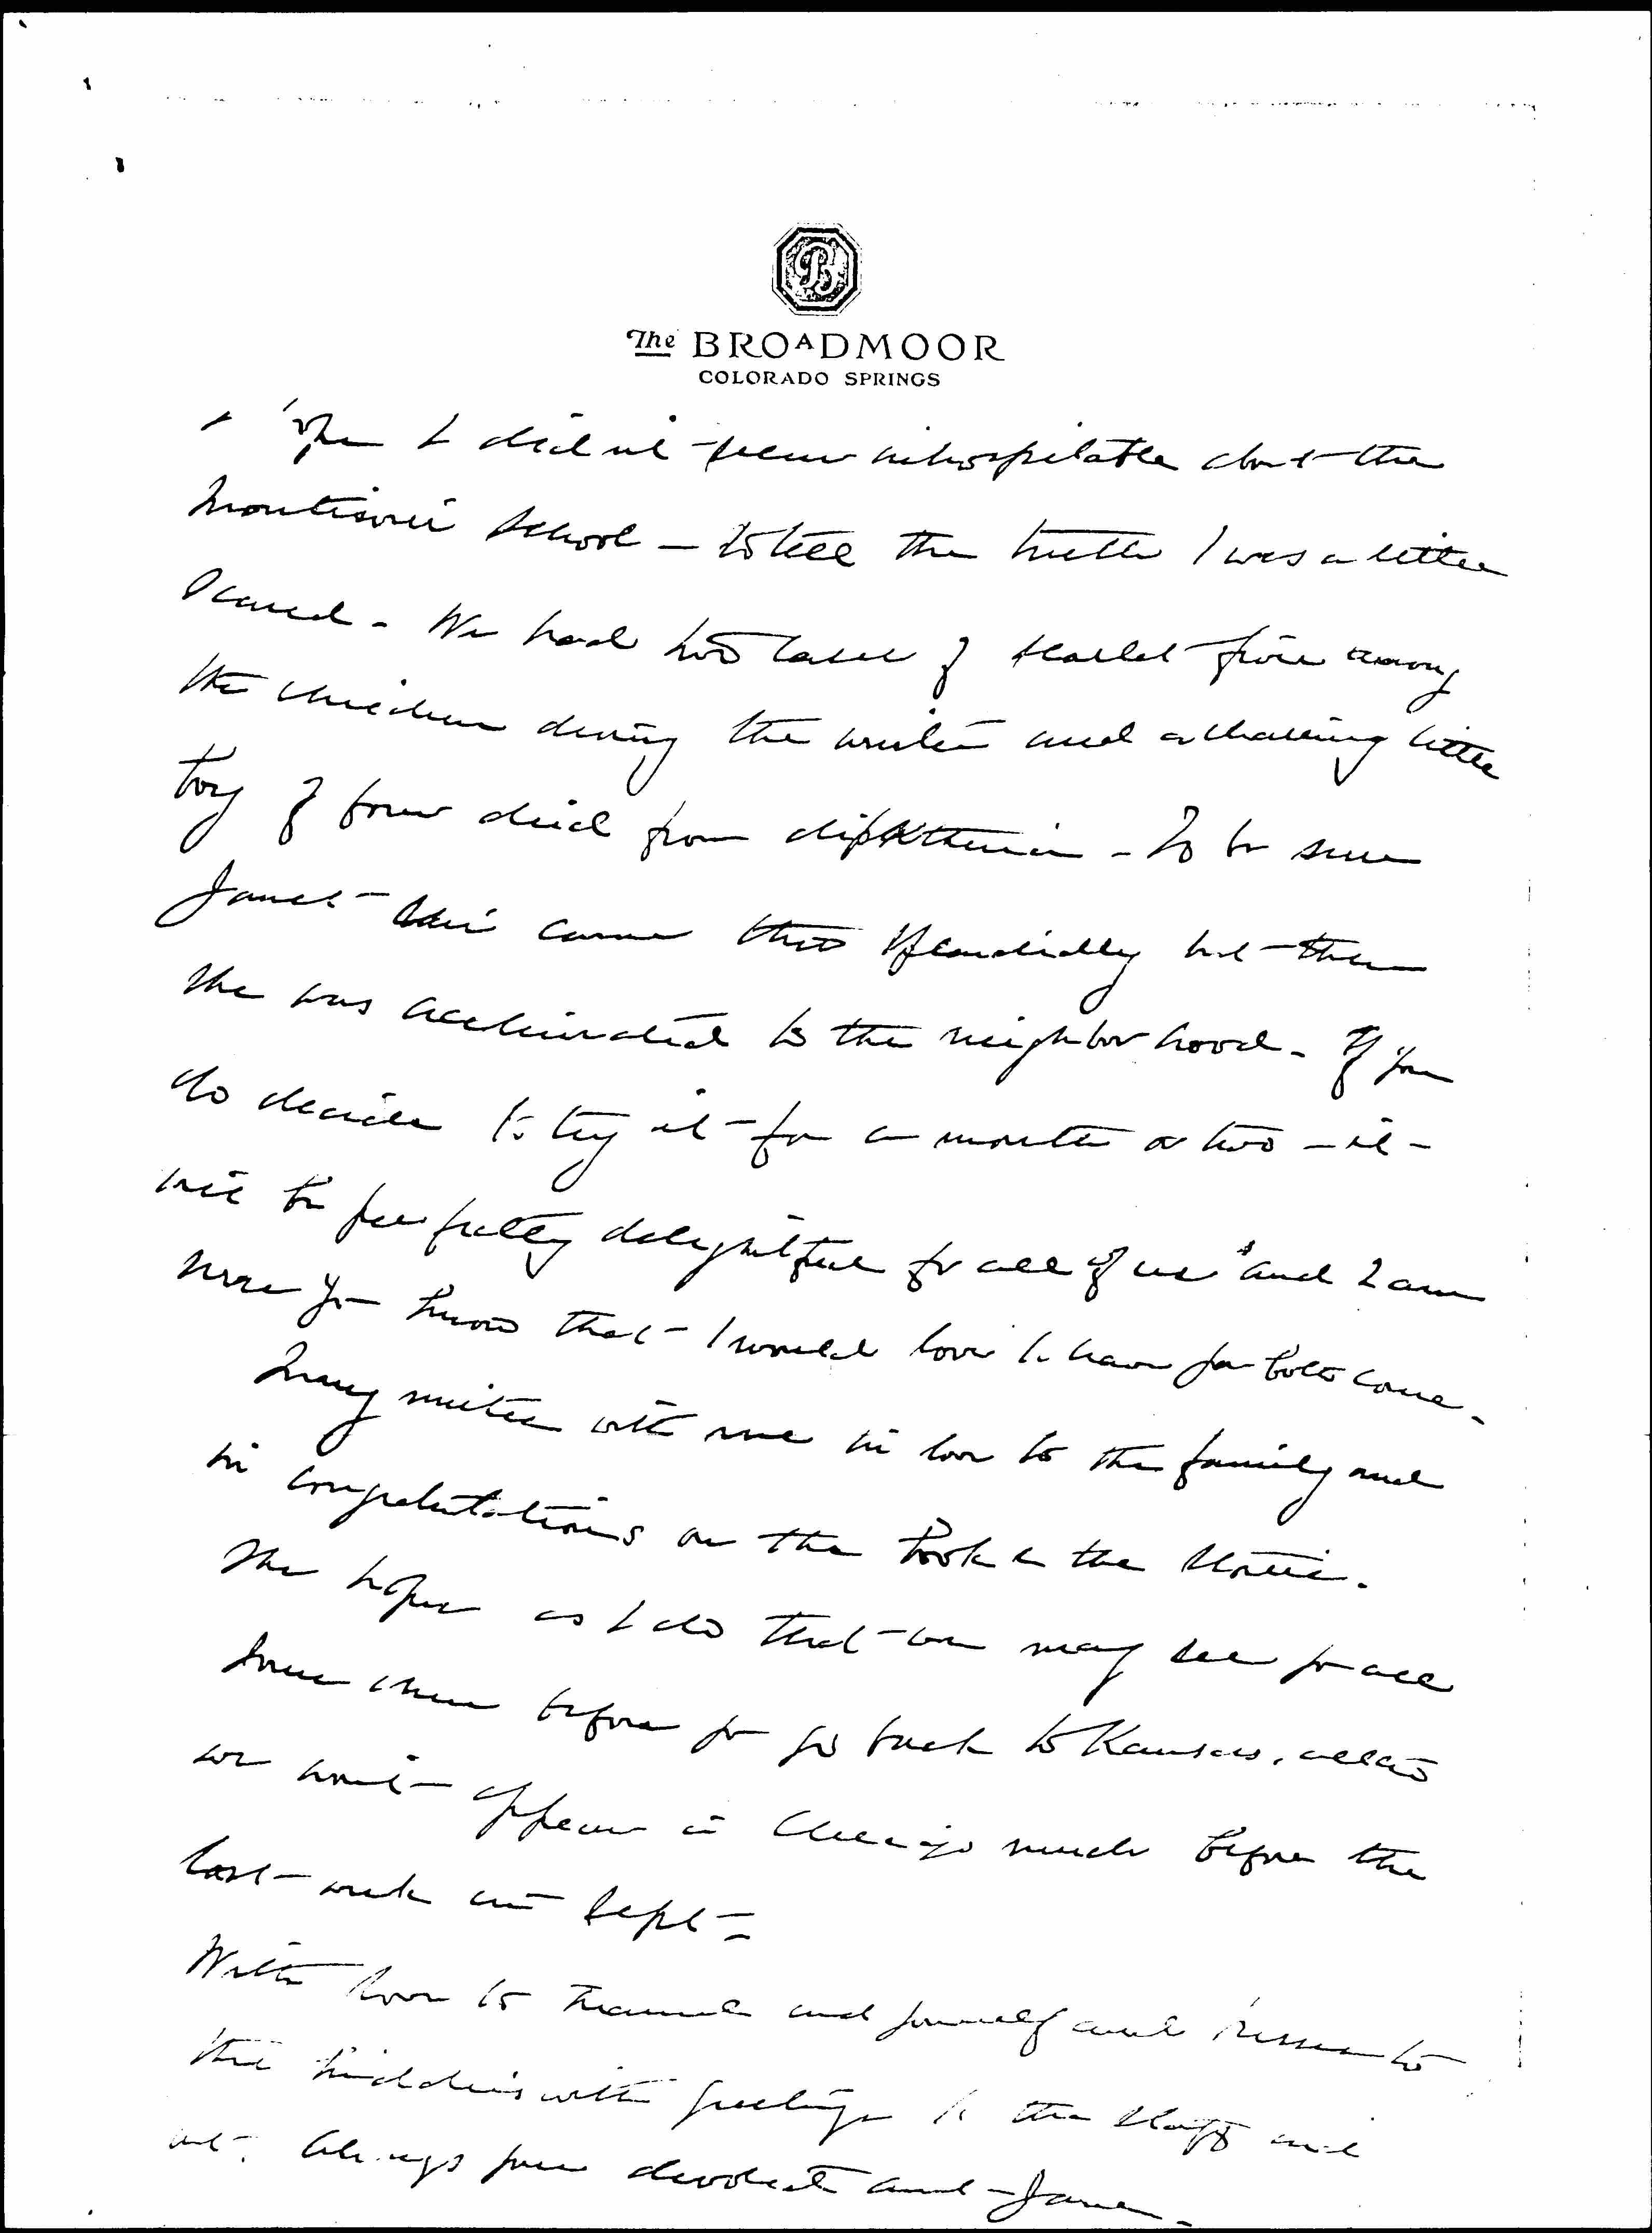 The BROADMOOR
COLORADO SPRINGS
I did not seem inhospitable about the
Montissori School – to tell the truth I was a little
scared – We had two cases of scarlet fever among
the children during the winter and a charming little
boy of four died from diphtheria – To be sure
Janet came thro splendidly but then
she was acclimated to the neighborhood – If you
do decide to try it for a month or two – it
will be perfectly delightful for all of us and I am
sure you know that I would love to have you both come –
Mary unites with me in love to the family and
in congratulations on the book & the
She hopes as I do that we may see you all
some where before you go back to Kansas, altho
we won't appear in Chicago much before the
last week in Sept –
With love to and yourself and kisses to
the kiddies with greetings to the staff and
all. Always your devoted Aunt Jane –